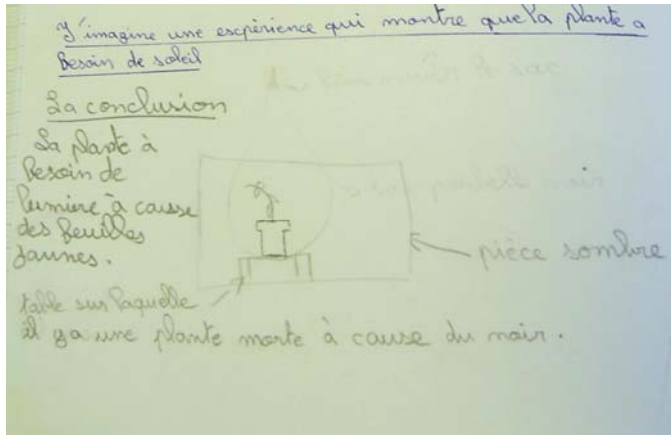 J'imagine une escpérience qui montre que la plante a
besoin de soleil
La conclusion
La plante à
besoin de
lumière à cause
des feuilles
jaunes.
pièce sombre
table sur laquelle
il y a une plante morte à cause du noir.